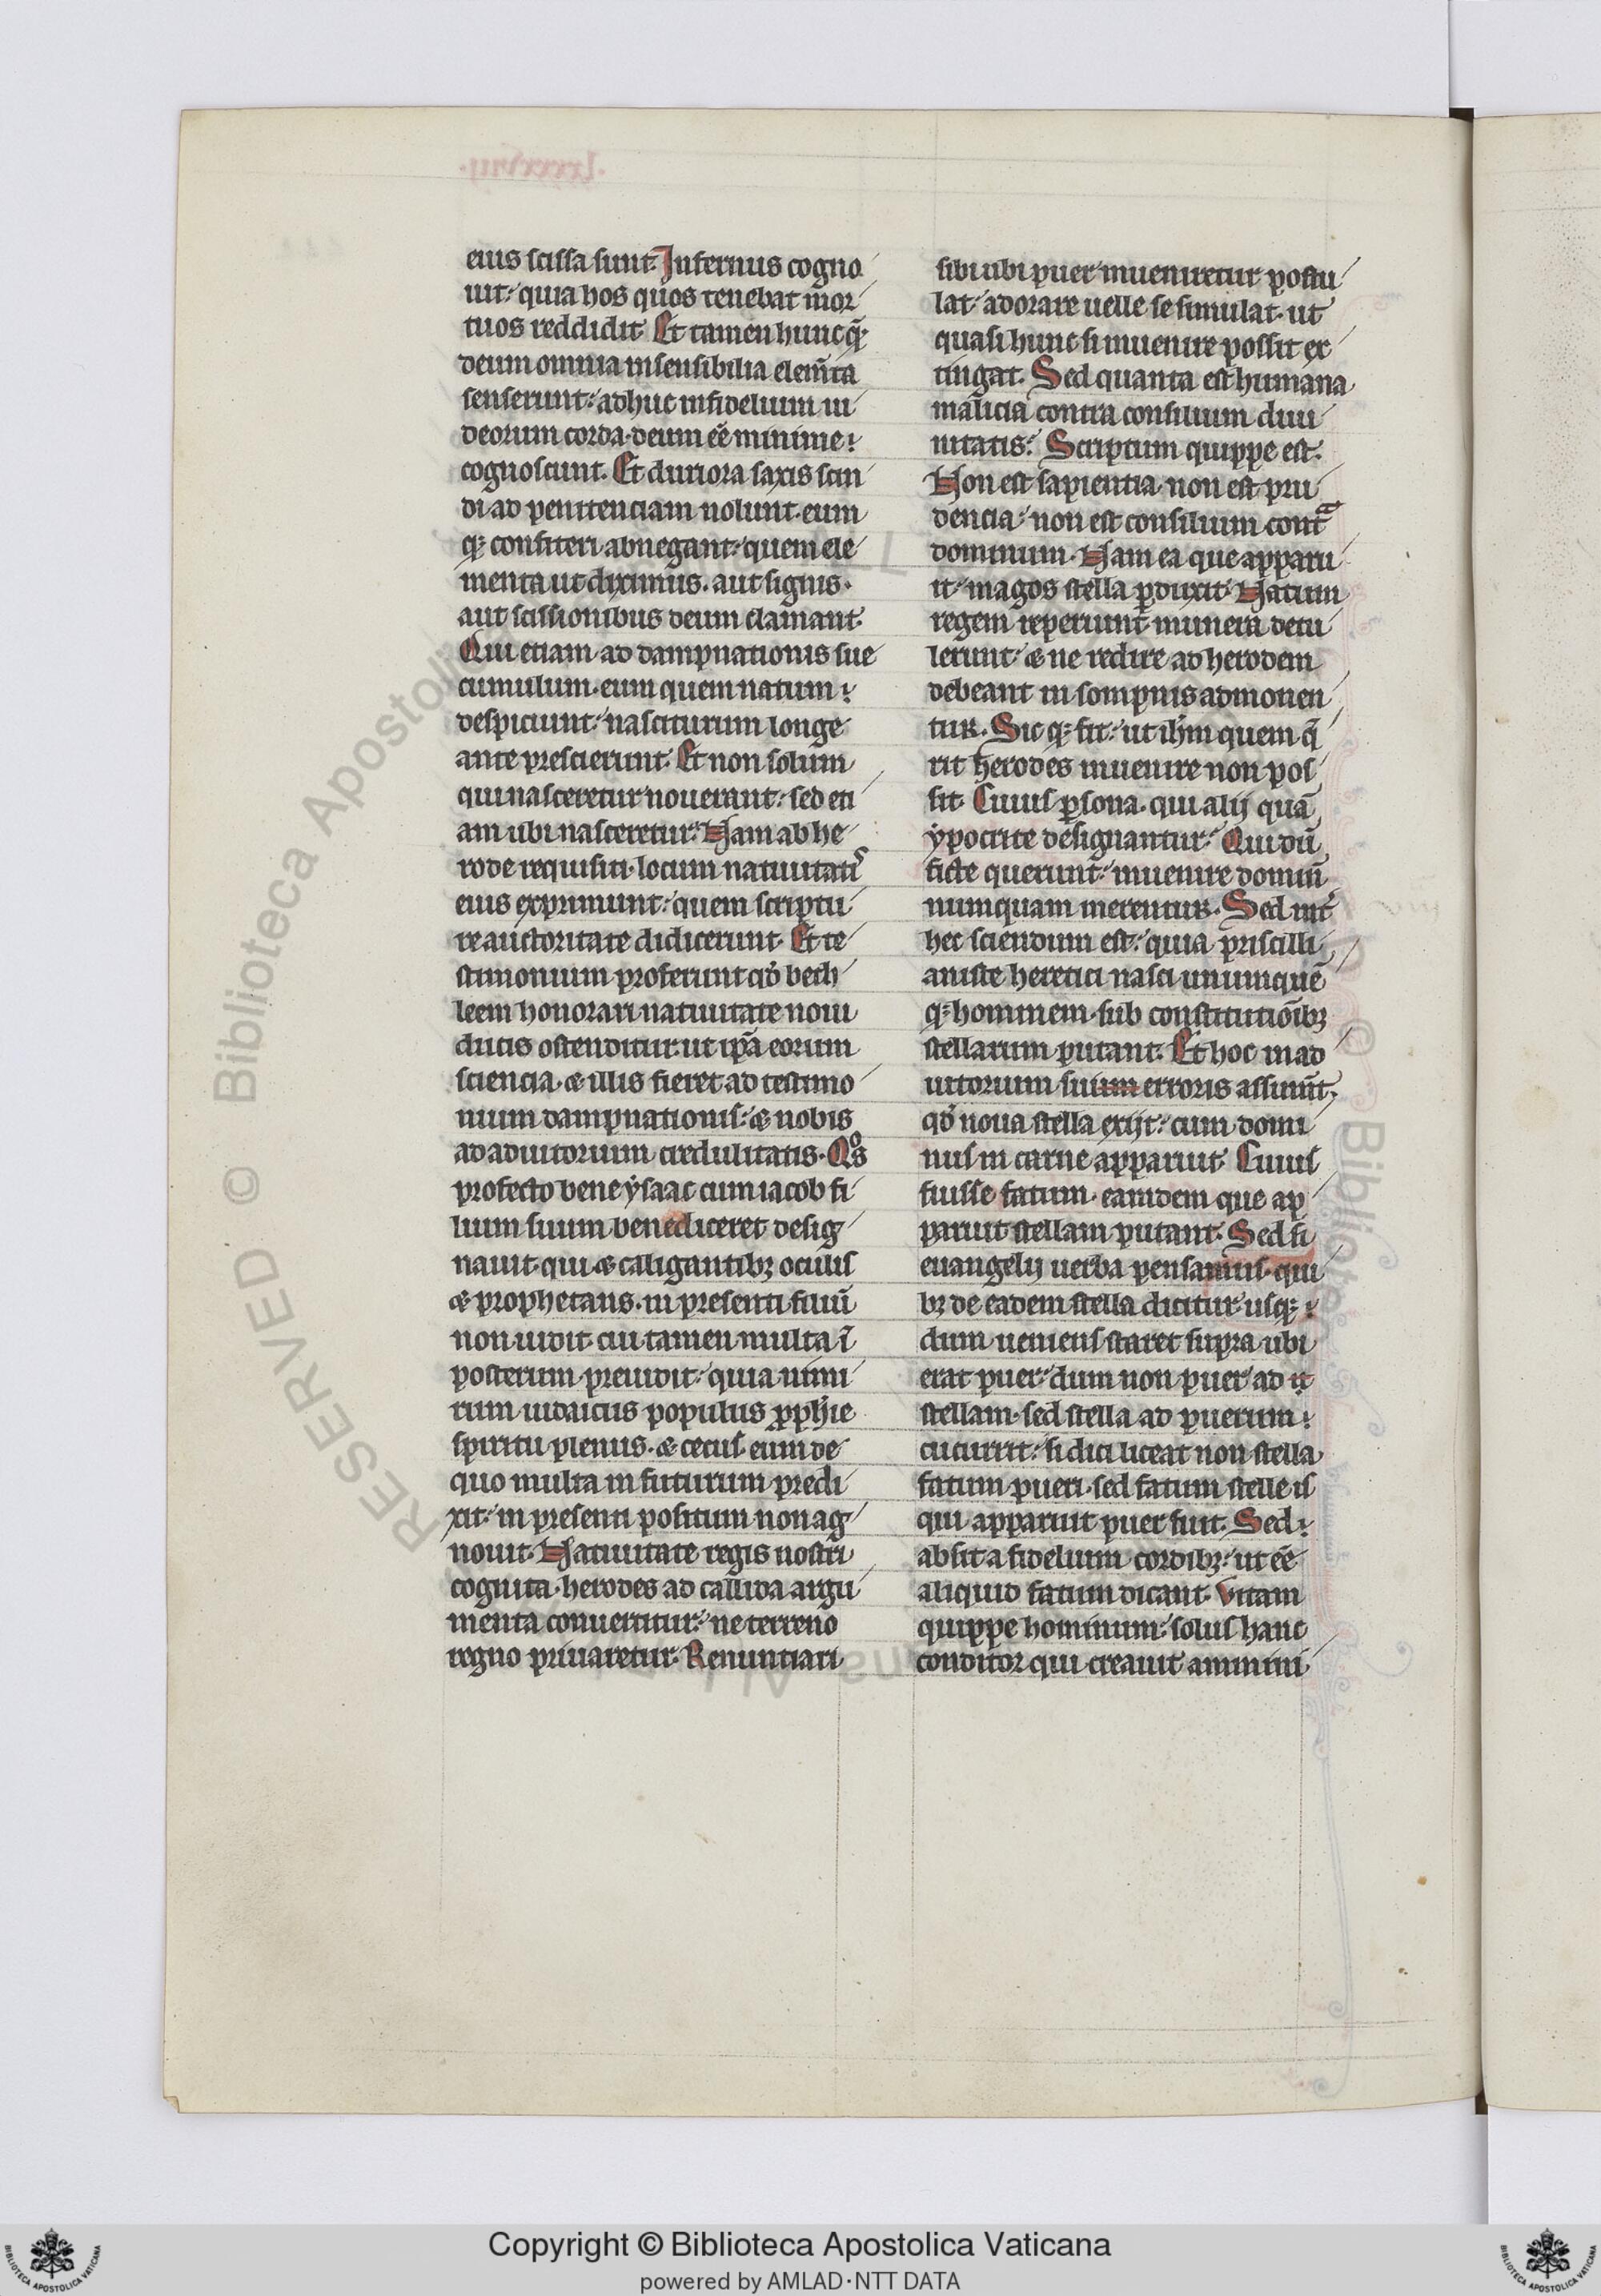 eius scissa sunt. Infernus cogno
uit: quia hos quos tenebat mor
tuos reddidit. Et tamen hunc q̄;
deum omnia insensibilia elem̄ta
senserunt: adhuc infidelium iu
deorum corda deum ēē minime:
cognoscunt. Et duriora saxis scin
di ad penitenciam nolunt. eum
q; confiteri abnegant: quem ele
menta ut diximus. aut signis.
aut scissionibus deum clamant.
Qui etiam ad dampnationis sue
cumulum. eum quem natum:
despiciunt: nasciturum longe
ante prescierunt. Et non solum
qui nasceretur nouerant: sed eti
am ubi nasceretur. Nam ab he
rode requisiti. locum natiuitatis
eius exprimunt: quem scriptu
re auctoritate didicerunt. Et te
stimonium proferunt qd̄ beth
leem honorari natiuitate noui
ducis ostenditur. ut ip̄a eorum
sciencia. & illis fieret ad testimo
nium dampnationis: & nobis
ad adiutorium credulitatis. Qos
profecto bene ẏsaac cum iacob fi
lium suum benediceret desig
nauit. qui & caligantib; oculis
& prophetans. in presenti filiū
non uidit cui tamen multa ī
posterum preuidit: quia nimi
rum iudaicus populus pp̄hie
spiritu plenus. & cecus eum de
quo multa in futurum predi
xit: in presenti positum non ag
nouit. Natiuitate regis nostri
cognita. herodes ad callida argu
menta conuertitur: ne terreno
regno priuaretur. Renuntiari
sibi ubi puer inueniretur postu
lat: adorare uelle se simulat. ut
quasi hunc si inuenire possit ex
tingat. Sed quanta est humana
malicia contra consilium diui
nitatis: Scriptum quippe est.
Non est sapientia non est pru
dencia: non est consilium contᵃ
dominum. Nam ea que apparu
it: magos stella p̄duxit. Natum
regem reperiunt munera detu
lerunt: & ne redire ad herodem
debeant in sompnis admonen
tur. Sic q; fit: ut ih̄m quem q̄
rit herodes inuenire non pos
sit. Cuius p̄sona. qui alij quā
ẏpocrite designantur: Qui dū
ficte querunt: inuenire dominū
numquam merentur. Sed int̄
hec sciendum est: quia priscilli
aniste heretici nasci unumquē
q; hominem. sub constitutiōib;
stellarum putant. Et hoc in ad
iutorium suium erroris assum̄t.
qd̄ noua stella exijt: cum domi
nus in carne apparuit. Cuius
fuisse fatum. eamdem que ap
paruit stellam putant. Sed si
euangelij uerba pensamus. qui
b; de eadem stella dicitur. usq;:
dum ueniens staret supra ubi
erat puer: dum non puer ad it
stellam. sed stella ad puerum:
cucurrit: si dici liceat non stella
fatum pueri. sed fatum stelle is
qui apparuit puer fuit. Sed:
absit a fidelium cordib;: ut ēē
aliquid fatum dicant. Vitam
quippe hominum: solus hanc
conditor qui creauit amminı
Copyright © Biblioteca Apostolica Vaticana
powered by AMLAD·NTT DATA